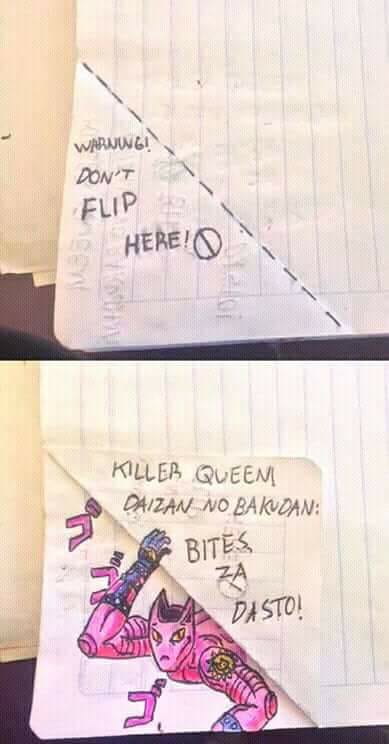 WARNING!
DON'T
FLIP
HERE!
KILLER QUEEN
DAIZAN NO BAKUDAN:
BITES
ZA
DASTO!
ゴ
ゴ
ゴ